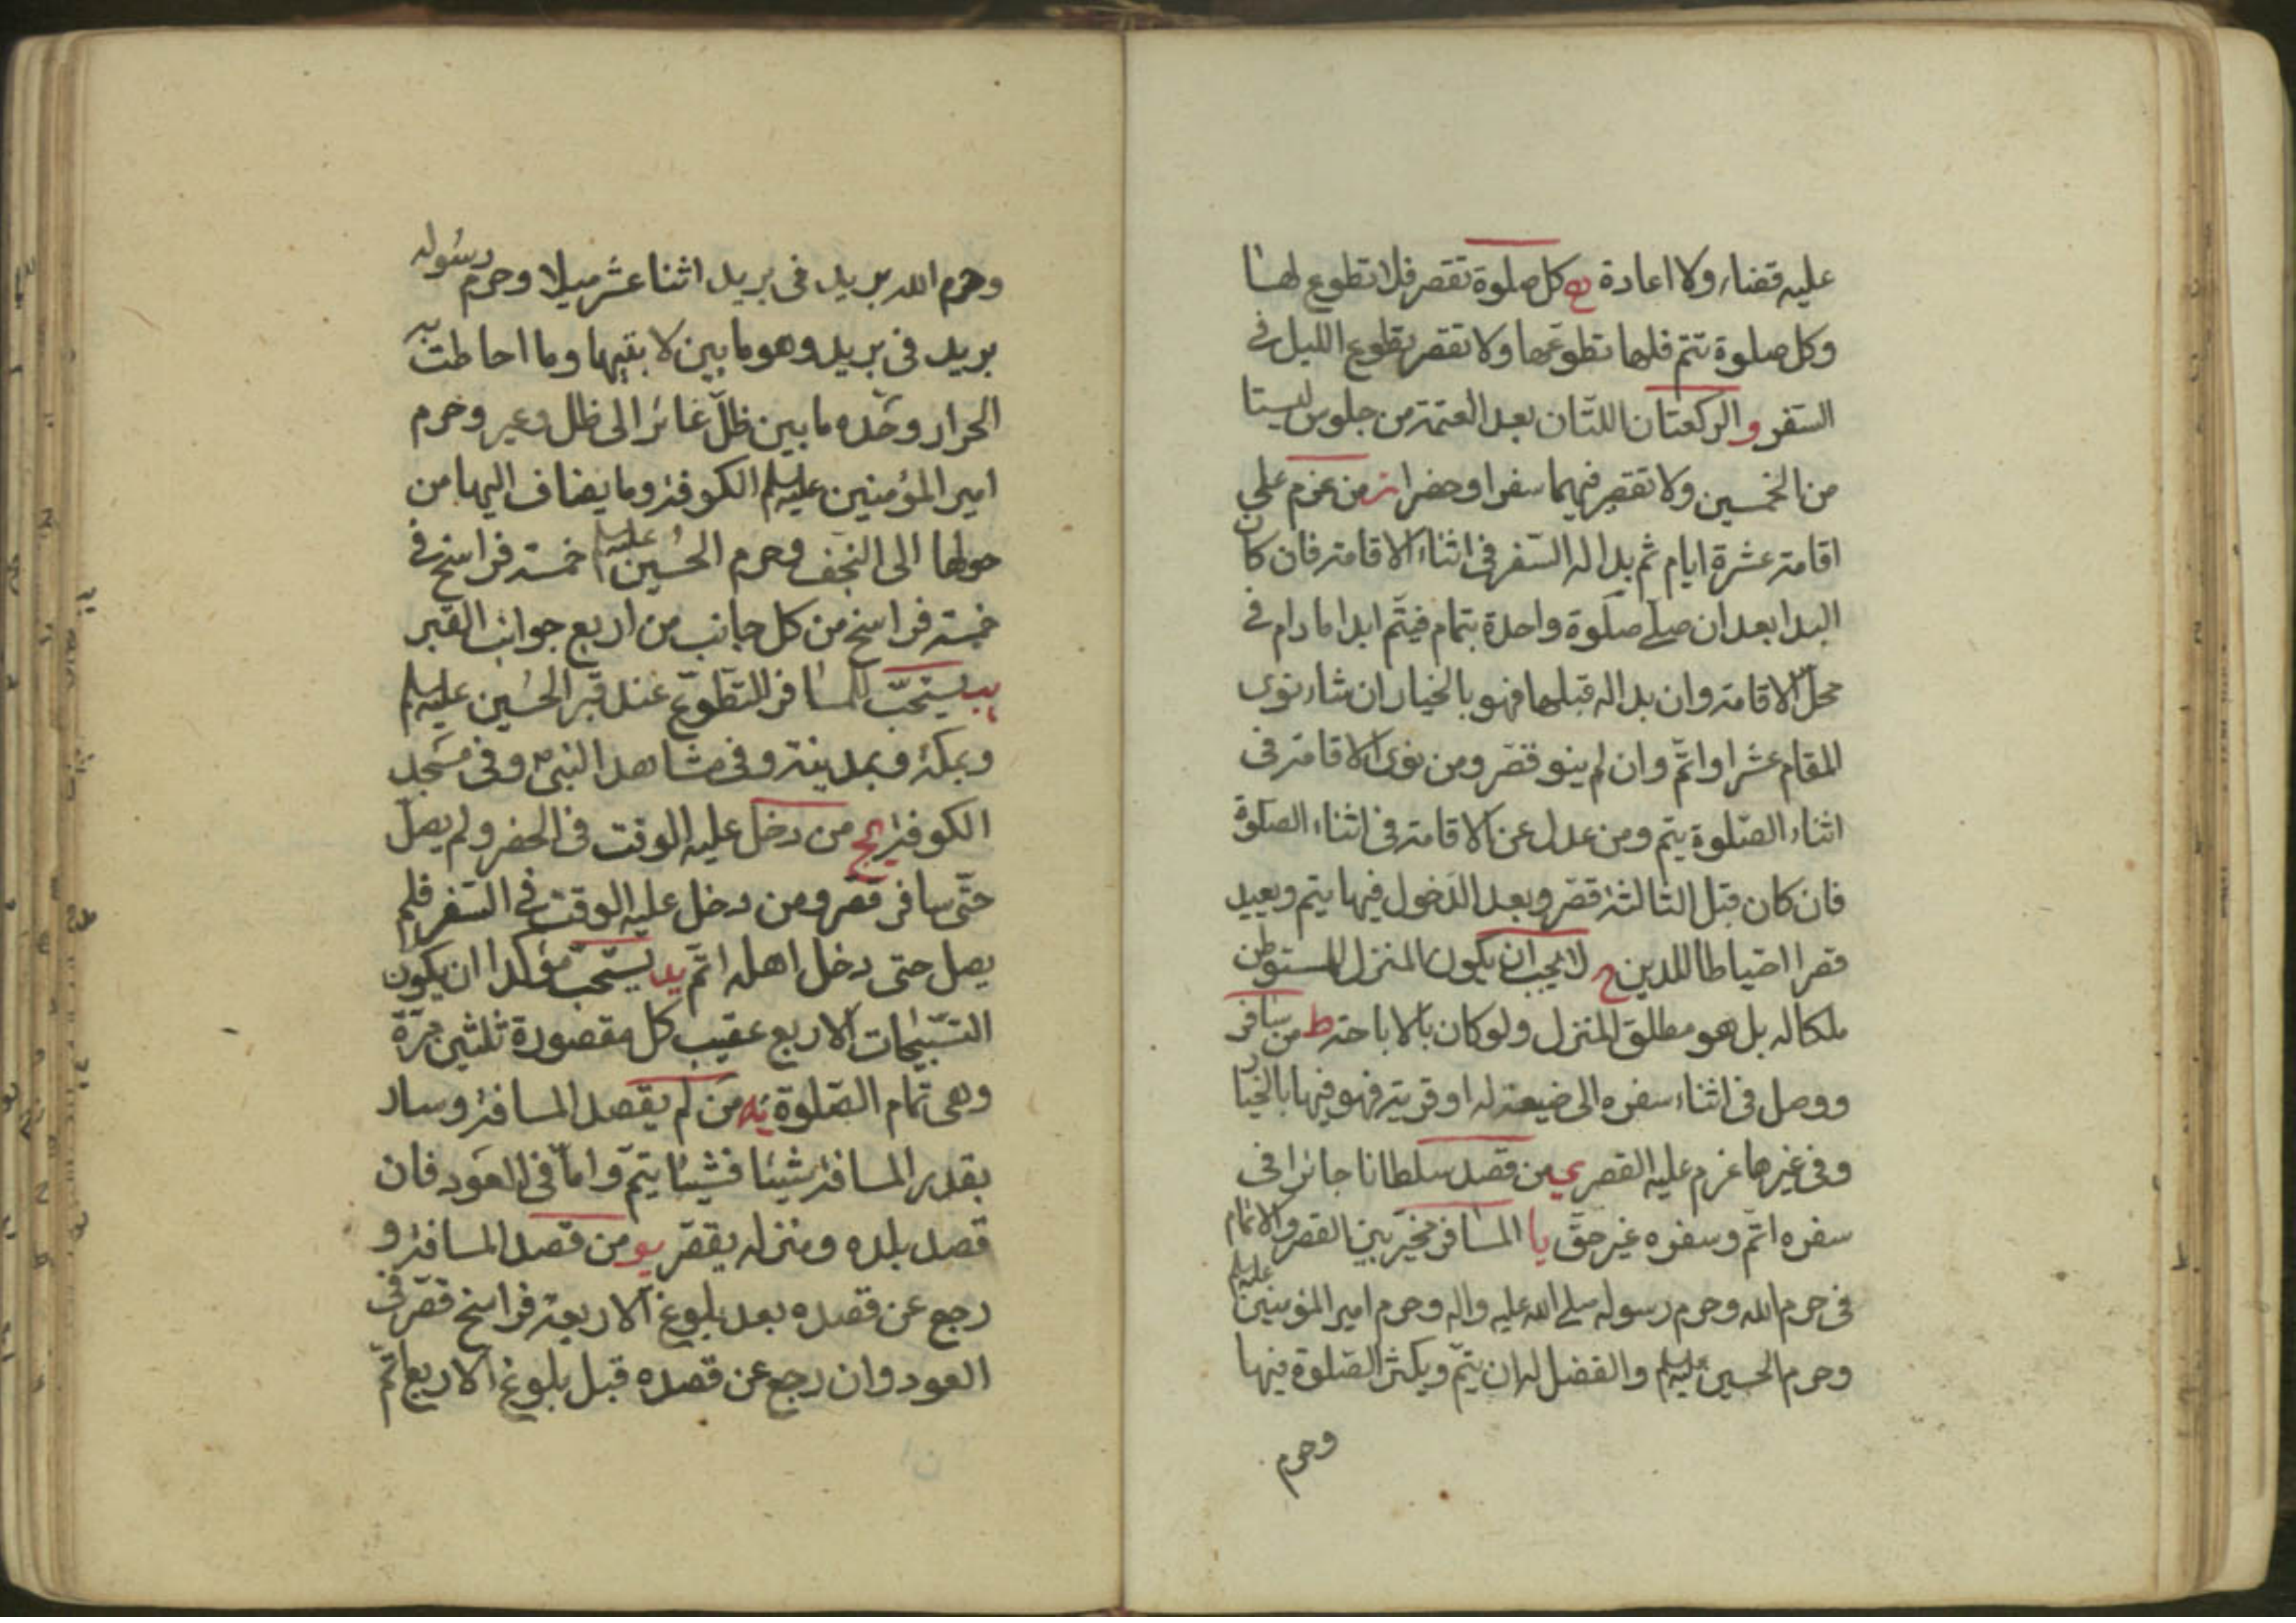 عليه قضاء ولا اعادة ه كل صلوة تقصر فلا تطوع لها
وكل صلوة تتم فلها تطوعها ولا تقصر تطوع الليل في
السفر و الركعتان اللتان بعد العتمة من جلوس ليستا
من الخمسين ولا تقصر فيهما سفرا وحضرا ز من عزم علي
اقامة عشرة ايام ثم بدا له السفر في اثناء الاقامة فان كان
البدا بعد ان صلى صلوة واحدة بتمام فيتم ابدا مادام في
محل الاقامة وان بدا له قبلها فهو بالخيار ان شاء نوى
المقام عشرا واتم وان لم ينو قصر ومن نوى الاقامة في
اثناء الصلوة يتم ومن عدل عن الاقامة في اثناء الصلوة
فان كان قبل الثالثة قصر وبعد الدخول فيها يتم ويعيد
قصرا احتياطا للدين ح لا يجب ان يكون المنزل للمستوطن
ملكا له بل هو مطلق المنزل ولو كان بالاباحة ط من سافر
ووصل في اثناء سفره الى ضيعة له او قرية فهو فيها بالخيار
وفي غيرها عزم عليه القصر ي من قصد سلطانا جائرا في
سفره اتم وسفره غير حق يا المسافر مخير بين القصر والاتمام
في حرم الله وحرم رسوله صلى الله عليه واله وحرم امير المؤمنين عليه السلم
وحرم الحسين عليه السلم والفضل له ان يتم ويكثر الصلوة فيها
وحرم
وحرم الله بريد في بريد اثنا عشر ميلا وحرم رسوله
بريد في بريد وهو ما بين لابتيها وما احاطت به
الحرار وحده ما بين ظل غائر الى ظل وعير وحرم
امير المؤمنين عليه السلم الكوفة وما يضاف اليها من
حولها الى النجف وحرم الحسين عليه السلم خمسة فراسخ في
خمسة فراسخ من كل جانب من اربع جوانب القبر
يب يستحب للمسافر التطوع عند قبر الحسين عليه السلم
وبمكة وبمدينة وفي مشاهد النبي ص وفي مسجد
الكوفة يج من دخل عليه الوقت في الحضر ولم يصل
حتى سافر قصر ومن دخل عليه الوقت في السفر فلم
يصل حتى دخل اهله اتم يد يستحب مؤكدا ان يكون
التسبيحات الاربع عقيب كل مقصورة ثلثين مرة
وهي تمام الصلوة يه من لم يقصد المسافة وسار
بقدر المسافة شيئا فشيئا يتم واما في العود فان
قصد بلده ومنزله يقصر يو من قصد المسافة و
رجع عن قصده بعد بلوغ الاربعة فراسخ قصر في
العود وان رجع عن قصده قبل بلوغ الاربع اتم